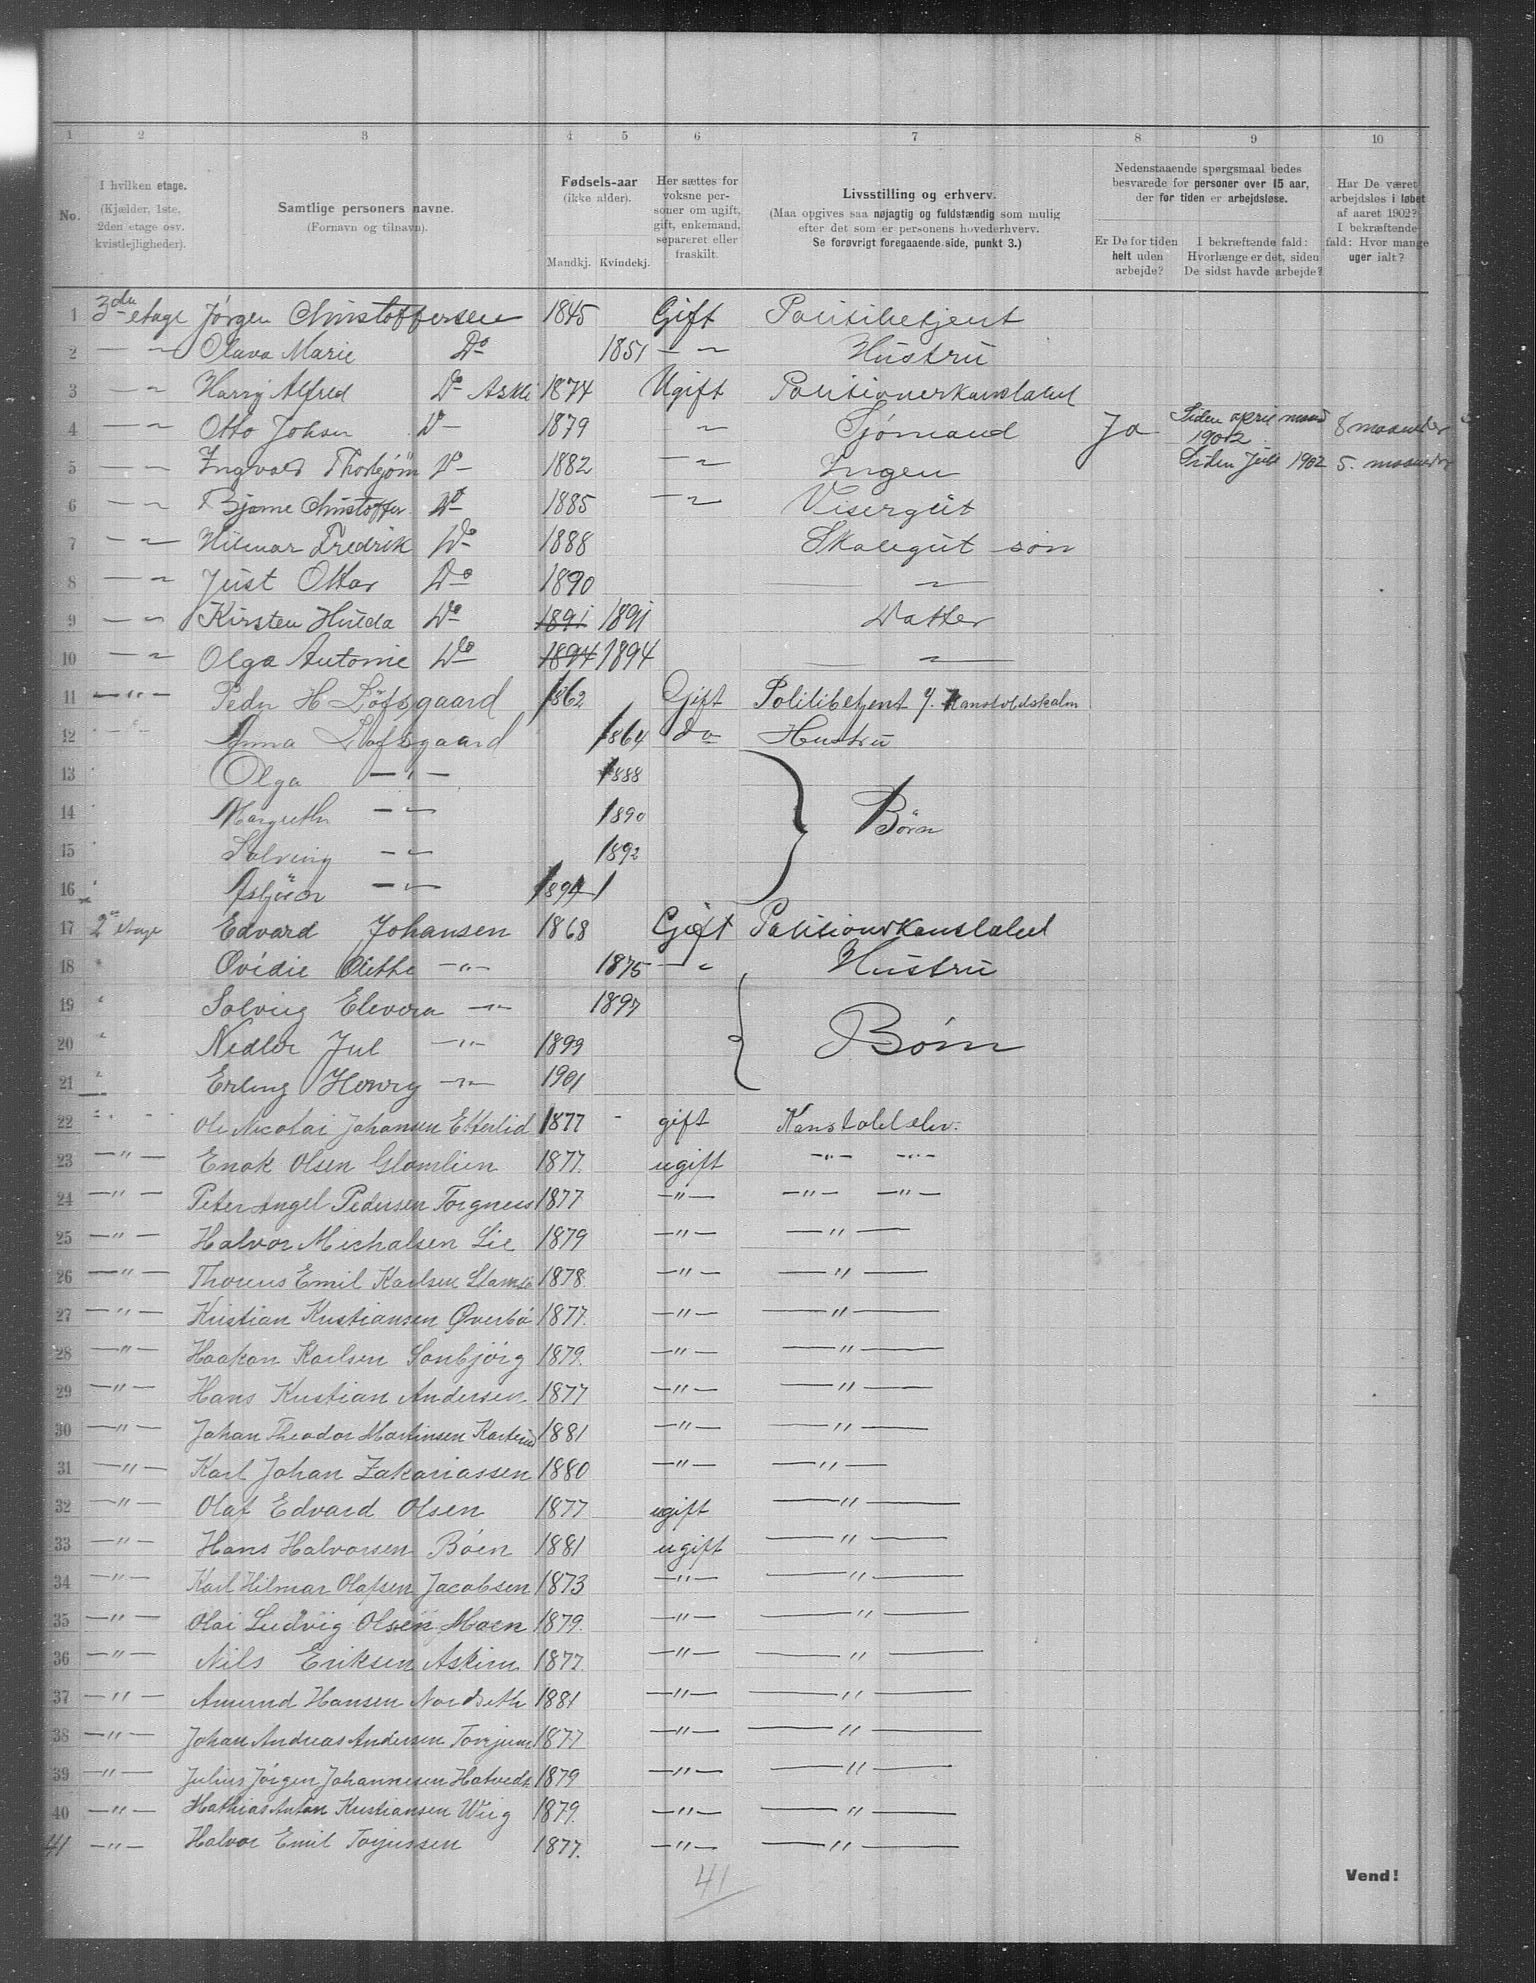 1 2 3 4 5 6 7 8 9 10
No.
I hvilken etage.
(Kjælder, 1ste,
2den etage osv.
kvistlejligheder).
Samtlige personers navne.
(Fornavn og tilnavn).
Fødsels-aar
(ikke alder).
Mandkj. Kvindekj.
Her sættes for
voksne per-
soner om ugift,
gift, enkemand,
separeret eller
fraskilt.
Livsstilling og erhverv.
(Maa opgives saa nøjagtig og fuldstændig som mulig
efter det som er personens hovederhverv.
Se forøvrigt foregaaende side, punkt 3.)
Nedenstaaende spørgsmaal bedes
besvarede for personer over 15 aar,
der for tiden er arbejdsløse.
Er De for tiden
helt uden
arbejde?
I bekræftende fald:
Hvorlænge er det, siden
De sidst havde arbejde?
Har De været
arbejdsløs i løbet
af aaret 1902?
I bekræftende
fald: Hvor mange
uger ialt?
1 3die etage Jørgen Christoffersen 1845 Gift Politibetjent
2 — " Olava Marie Do 1851 — " Hustru
3 — " Harry Alfred Do 1874 Ugift Politionerkonstabel
4 — " Otto Johan Do 1879 — " Sjømand Ja Siden april maaned 1902 8 maaneder
5 — " Ingvald Thorbjørn Do 1882 — " Ingen Siden Juli 1902 5. maaneder
6 — " Bjarne Christoffer Do 1885 — " Visergut
7 — " Hilmar Fredrik Do 1888 Skolegut søn
8 — " Just Ottar Do 1890 — " —
9 — " Kirsten Hulda Do 1891 1891 Datter
10 — " Olga Antonie Do 1894 1894 — " —
11 — " — Peder H Løfsgaard 1862 Gift Politibetjent
12 " Anna Løfsgaard 1864 do Hustru
13 " Olga — " — 1888
14 " Margrethe — " 1890 Børn
15 " Solveig — " 1892
16 " Asbjørn — " 1894 1
17 2den etage Edvard Johansen 1868 Gift Politionskonstabel
18 " Ovidie Olethe — " — 1875 — " Hustru
19 " Solveig Elevora — " — 1897
20 " Nidlor Jul — " — 1899 Børn
21 " Erling Henry — " — 1901
22 " Ole Nicolai Johansen Etterlid 1877 - gift Konstabelelev.
23 — " — Enok Olsen Glomlien 1877. ugift — " — — " —
24 — " — Peter Angel Pedersen Torgness 1877 — " — — " — — " —
25 — " — Halvor Michalsen Lie 1879 — " — — " —
26 — " — Thorus Emil Karlsen 1878. — " — — " —
27 — " — Kristian Kristiansen Øverbø 1877. — " — — " —
28 — " — Haakon Karlsen Sonbjörg 1879. — " — — " —
29 — " — Hans Kristian Andersen 1877 — " — — " —
30 — " — Johan Theodor Martinsen 1881 — " — — " —
31 — " — Karl Johan Zakariassen 1880 — " — — " —
32 — " — Olaf Edvard Olsen 1877 ugift — " —
33 — " — Hans Halvorsen Böen 1881 ugift — " —
34 — " — Karl Hilmar Olafsen Jacobsen 1873 — " — — " —
35 — " — Olai Ludvig Olsen Moen 1879. — " — — " —
36 — " — Nils Eriksen Askim 1877. — " — — " —
37 — " — Amund Hansen Nordseth 1881 — " — — " —
38 — " — Johan Andreas Andersen 1877 — " — — " —
39 — " — Julius Jørgen Johannesen Hatvedt 1879 — " — — " —
40 — " — Mathias Anton Kristiansen Wiig 1879. — " — — " —
41 — " — Halvor Emil Torjussen 1877. — " — — " —
41
Vend!